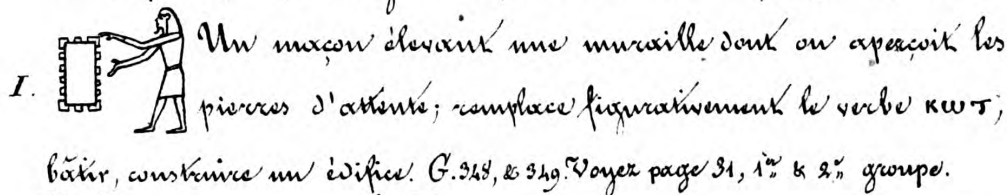 I. Un maçon élevant une muraille dont on aperçoit les
pierres d'attente; remplace figurativement le verbe ⲕⲱⲧ,
bâtir, construire un édifice. G. 348, & 349. Voyez page 31, 1er & 2e groupe.